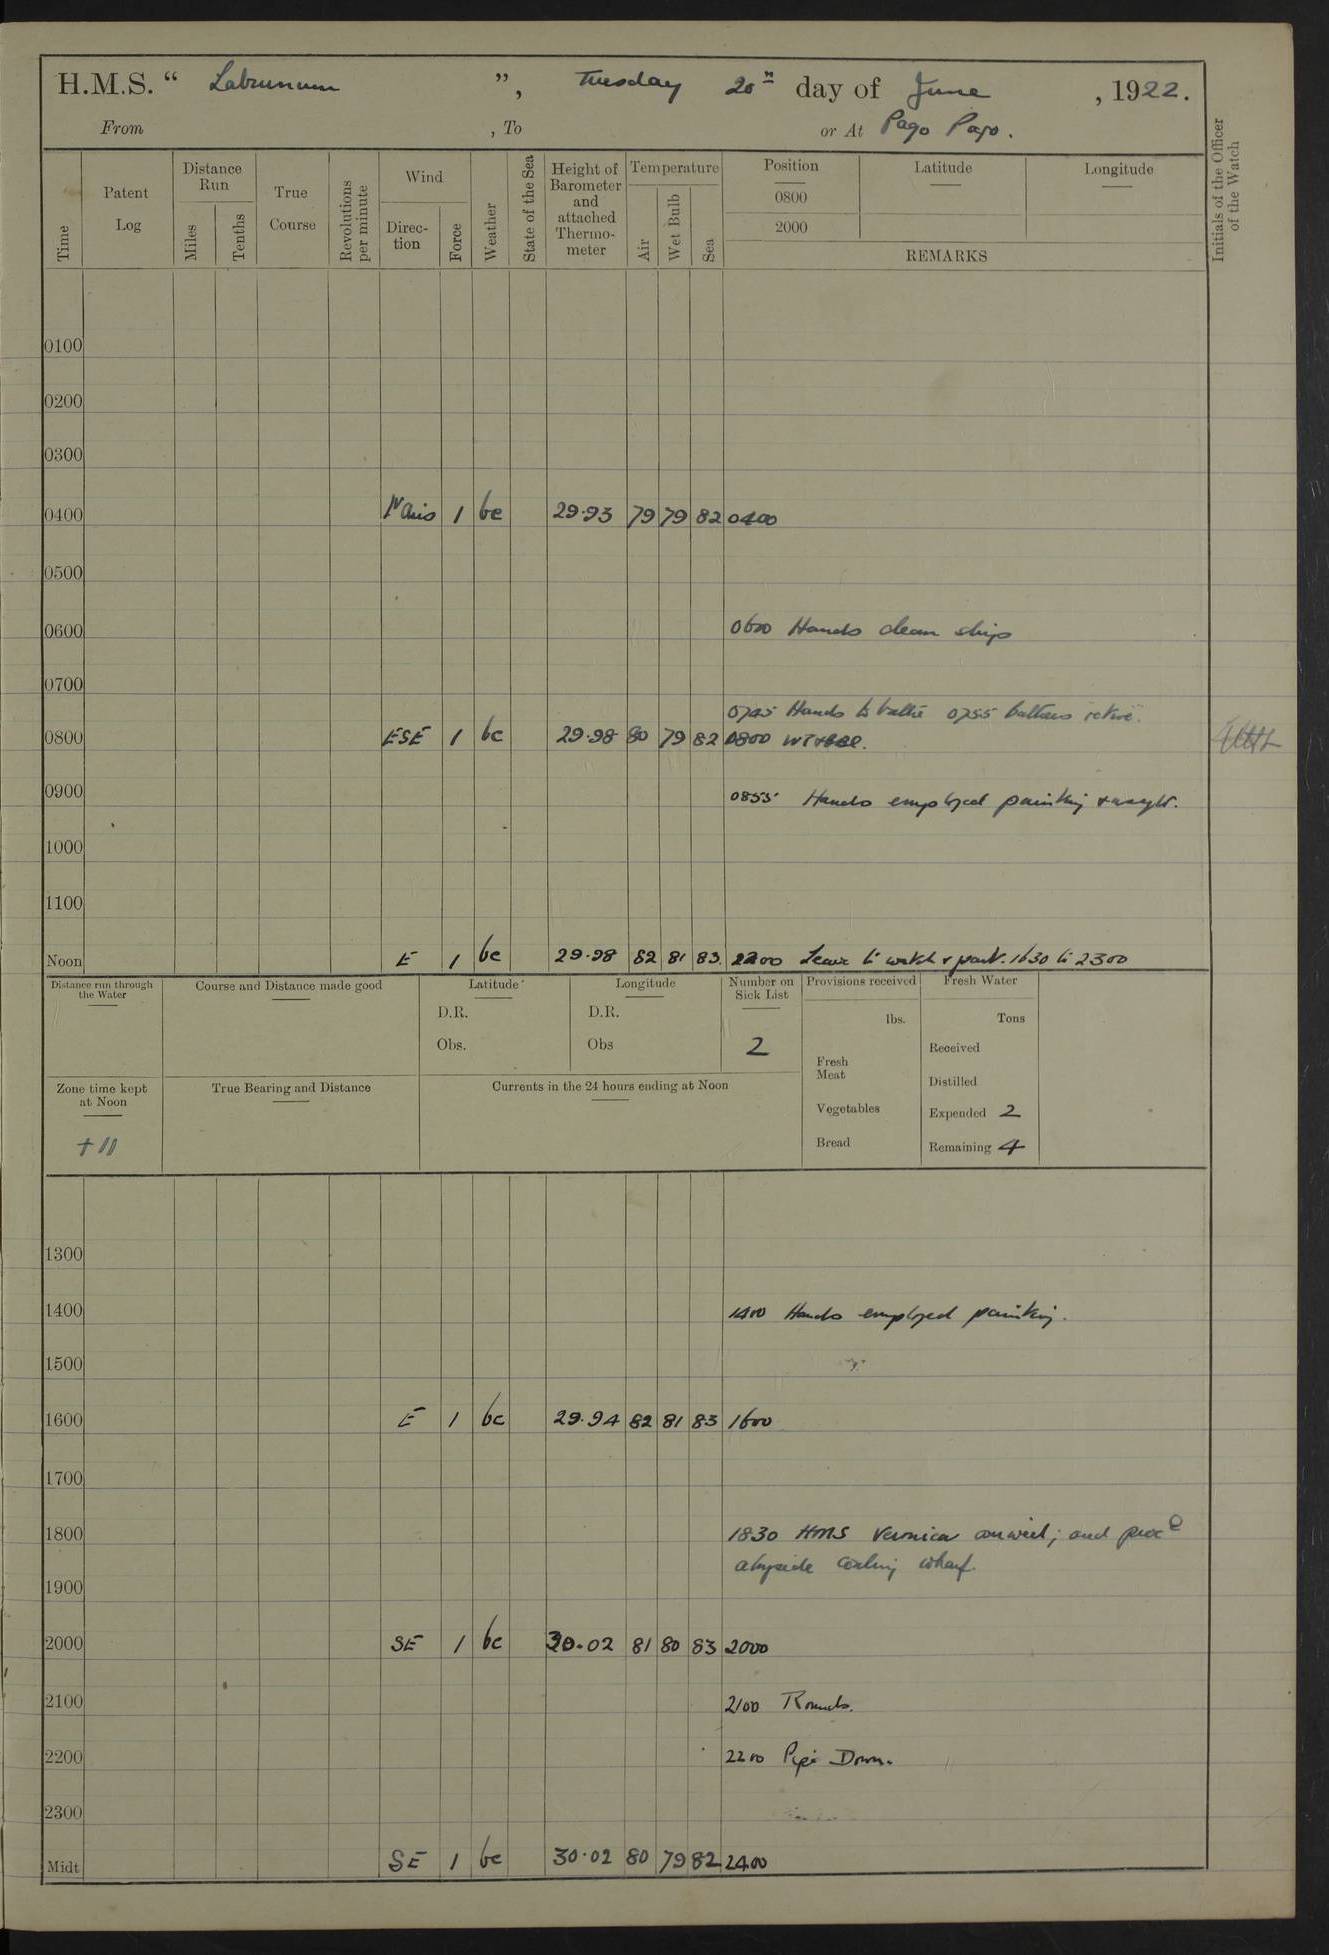 H.M.S. “ Laburnum ”, Tuesday 20th day of June, 1922.
From , To or At Pago Pago.
Time
Patent Log
Distance Run
Miles
Tenths
True Course
Revolutions per minute
Wind
Direction
Force
Weather
State of the Sea
Height of Barometer and attached Thermometer
Temperature
Air
Wet Bulb
Sea
Position
0800
2000
Latitude
Longitude
REMARKS
Initials of the Officer of the Watch
0100
0200
0300
0400 1 bc 29.93 79 79 82 0400
0500
0600 0600 Hands clean ship
0700
0745 Hands to bathe 0755 bathers
0800 ESE 1 bc 29.98 80 79 82 0800
0900 0855 Hands employed painting
1000
1100
Noon E 1 bc 29.98 82 81 83 Leave to watch & part. 1630 to 2300
Distance run through the Water
Course and Distance made good
Latitude
D.R.
Obs.
Longitude
D.R.
Obs
Number on Sick List
2
Provisions received
lbs.
Fresh Meat
Vegetables
Bread
Fresh Water
Tons
Received
Distilled
Expended 2
Remaining 4
Zone time kept at Noon
+11
True Bearing and Distance
Currents in the 24 hours ending at Noon
1300
1400 1400 Hands employed painting.
1500
1600 E 1 bc 29.94 82 81 83 1600
1700
1800 1830 HMS Veronica arrived; and proce
alongside coaling wharf.
1900
2000 SE 1 bc 30.02 81 80 83 2000
2100 2100 Rounds.
2200 2200 Pipe Down.
2300
Midt SE 1 bc 30.02 80 79 82 2400